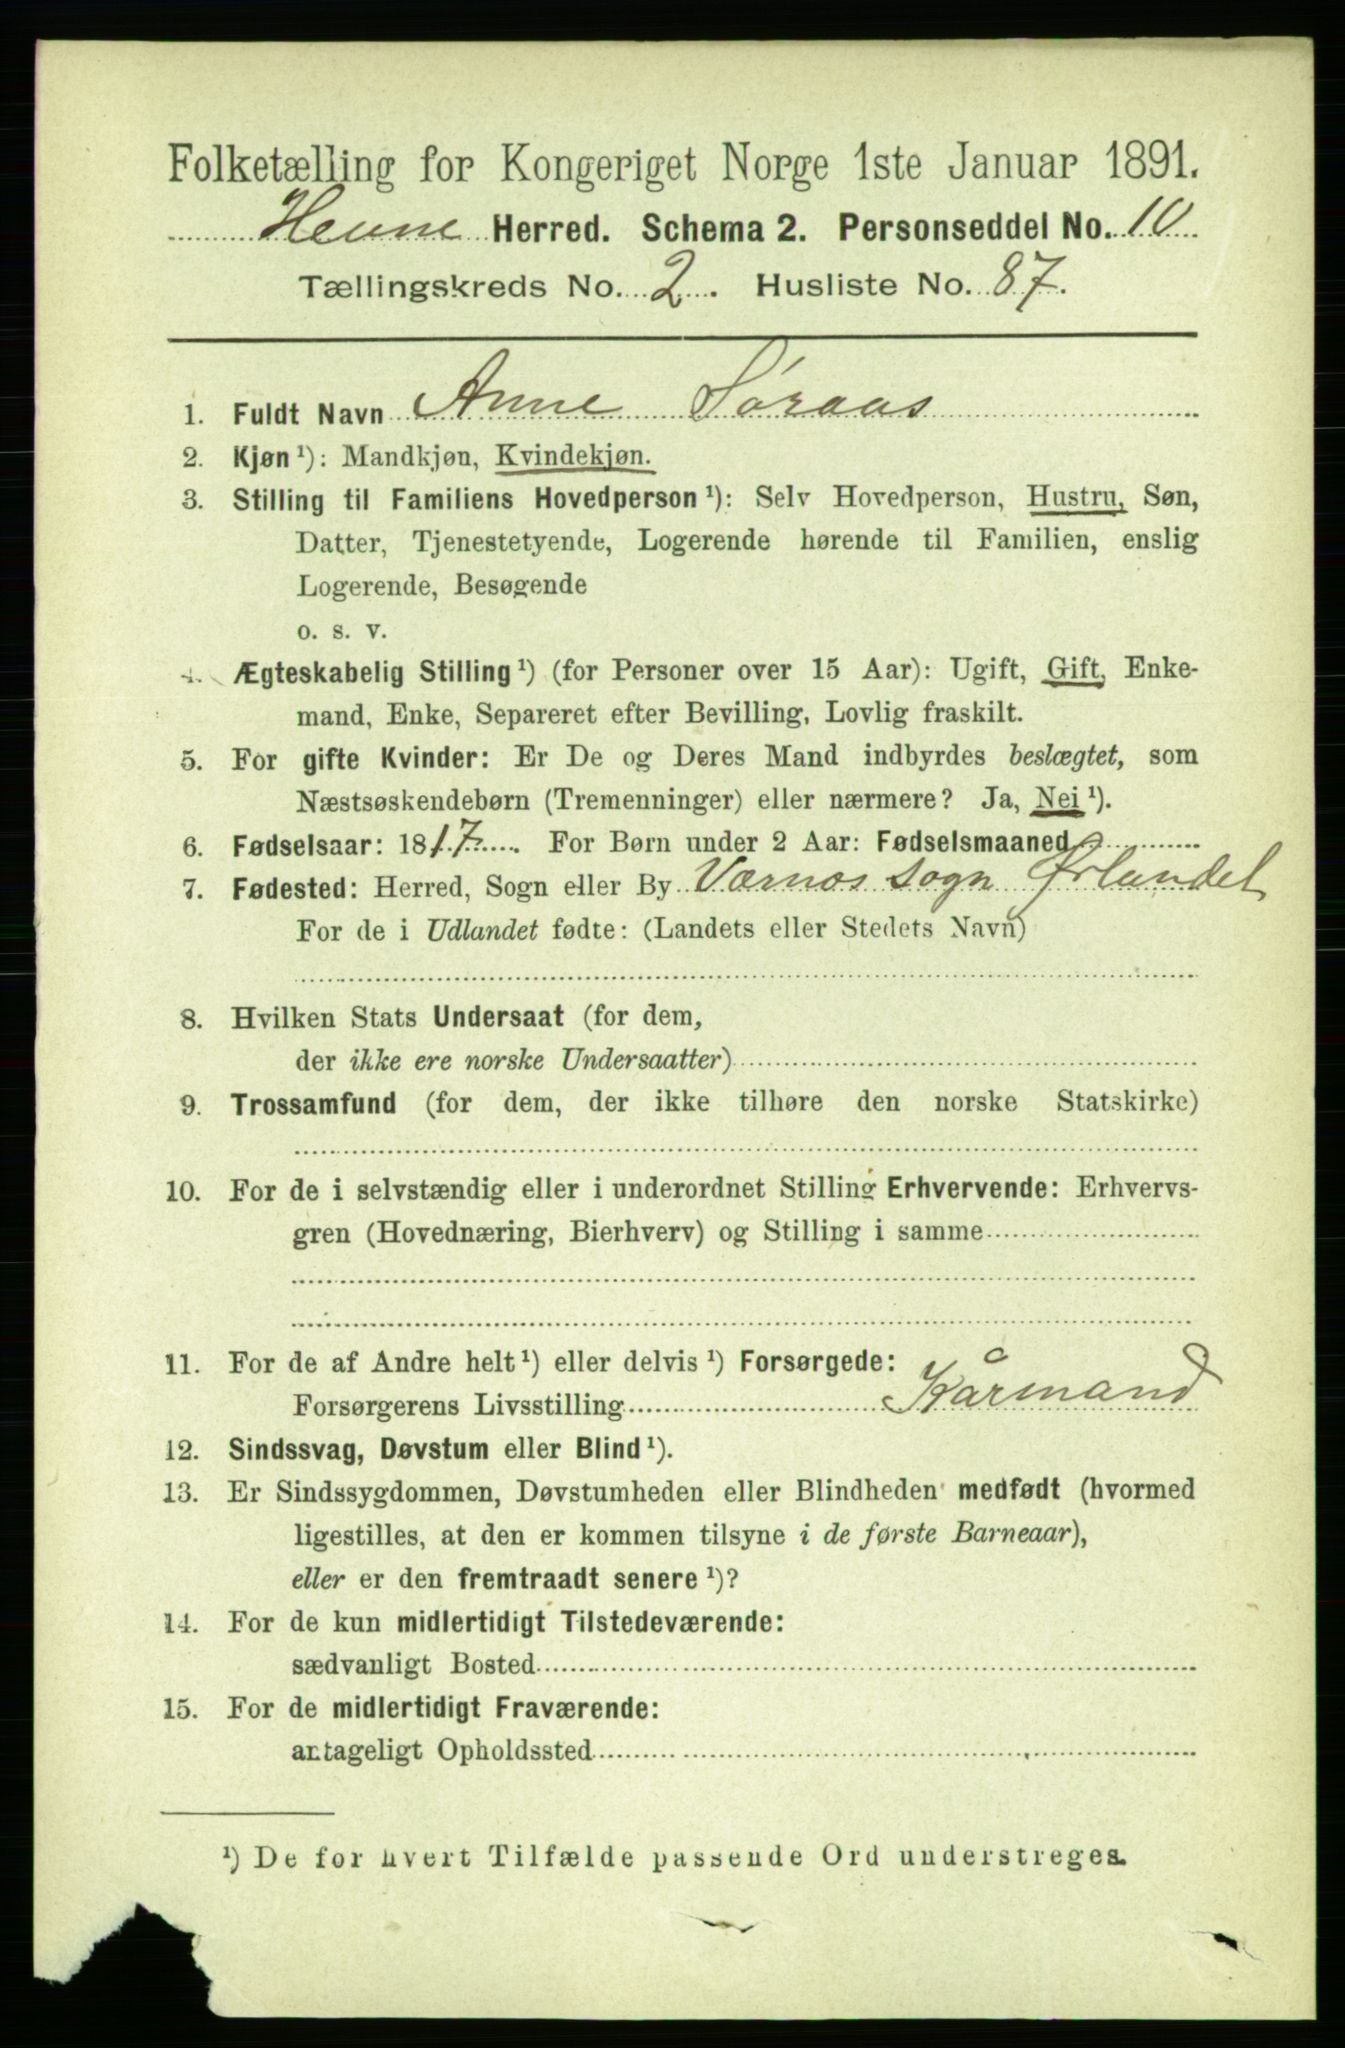 Folketælling for Kongeriget Norge 1ste Januar 1891.
Hevne Herred. Schema 2. Personseddel No. 10
Tællingskreds No. 2. Husliste No. 87.
1. Fuldt Navn Anne Søraas
2. Kjøn ¹): Mandkjøn, Kvindekjøn.
3. Stilling til Familiens Hovedperson ¹): Selv Hovedperson, Hustru, Søn,
Datter, Tjenestetyende, Logerende hørende til Familien, enslig
Logerende, Besøgende
o. s. v.
4. Ægteskabelig Stilling ¹) (for Personer over 15 Aar): Ugift, Gift, Enke-
mand, Enke, Separeret efter Bevilling, Lovlig fraskilt.
5. For gifte Kvinder: Er De og Deres Mand indbyrdes beslægtet, som
Næstsøskendebørn (Tremenninger) eller nærmere? Ja, Nei ¹).
6. Fødselsaar: 1817. For Børn under 2 Aar: Fødselsmaaned
7. Fødested: Herred, Sogn eller By Værnes sogn Ørlandet
For de i Udlandet fødte: (Landets eller Stedets Navn)
8. Hvilken Stats Undersaat (for dem,
der ikke ere norske Undersaatter)
9. Trossamfund (for dem, der ikke tilhøre den norske Statskirke)
10. For de i selvstændig eller i underordnet Stilling Erhvervende: Erhvervs-
gren (Hovednæring, Bierhverv) og Stilling i samme
11. For de af Andre helt ¹) eller delvis ¹) Forsørgede:
Forsørgerens Livsstilling Kårmand
12. Sindssvag, Døvstum eller Blind ¹).
13. Er Sindssygdommen, Døvstumheden eller Blindheden medfødt (hvormed
ligestilles, at den er kommen tilsyne i de første Barneaar),
eller er den fremtraadt senere ¹)?
14. For de kun midlertidigt Tilstedeværende:
sædvanligt Bosted
15. For de midlertidigt Fraværende:
antageligt Opholdssted
¹) De for hvert Tilfælde passende Ord understreges.